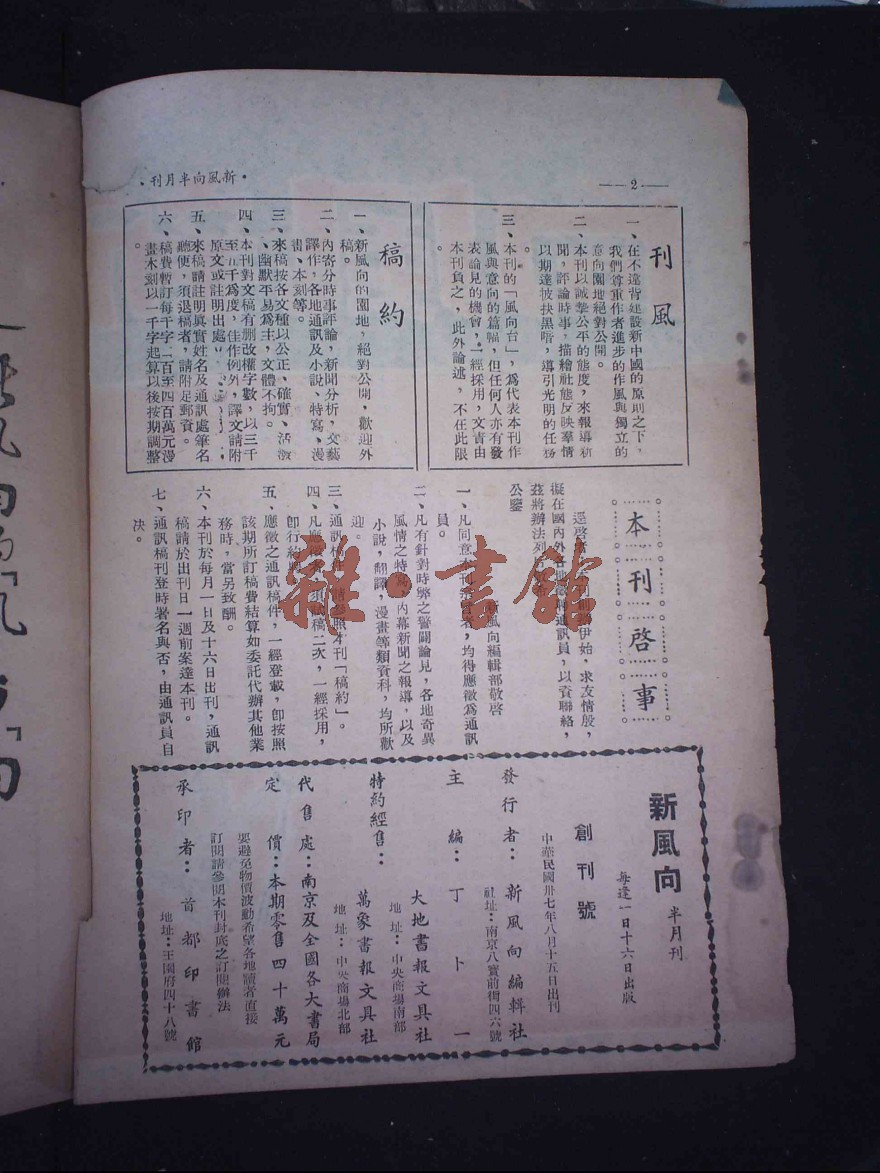 —2—
新風向半月刊
刊風
一、在不違背建設新中國的原則之下，
我們尊重作者進步的作風與獨立的
意向園地絕對公開。
二、本刊以誠摯公平的態度，來報導新
聞，評論時事，描繪社態反映羣情
以期達被抉黑暗，導引光明的任務
。
三、本刊的「風向台」，爲代表本刊作
風與意向的篇幅，但任何人亦有發
表論見的機會，一經採用，文責由
本刊負之，此外論述，不在此限
。
稿約
一、新風向的園地，絕對公開，歡迎外
稿。
二、內寄分時事評論，新聞分析，文藝
譯作，各地通訊及小說、特寫、漫
畫、本刻等。
三、來稿按各文種以公正、確實、活潑
、幽默平易爲主，文體不拘。
四、本刊對文稿有刪改權字數，以三千
至五千爲度，佳作例外，譯文請附
原文或註明出處
五、來稿請註明眞實姓名及通訊處筆名
聽便，須退稿者，請附足郵資。
六、稿費暫訂每千字二百至四百萬元漫
畫木刻以一千字起算以後按期調整
。
本刊啓事
逕啓
伊始，求友情殷，
擬在國內外各
通訊員，以資聯絡，
茲將辦法列
公鑒
新風向編輯部敬啓
一、凡同意本刊
者，均得應徵爲通訊
員。
二、凡有針對時弊之警闢論見，各地奇異
風情之特寫，內幕新聞之報導，以及
小說，翻譯，漫畫等類資料，均所歡
迎。
三、通訊稿件，請參照本刊「稿約」。
四、凡應徵者，須試稿二次，一經採用，
卽行約聘
五、應徵之通訊稿件，一經登載，卽按照
該期所訂稿費結算如委託代辦其他業
務時，當另致酬。
六、本刊於每月一日及十六日出刊，通訊
稿請於出刊日一週前案達本刊。
七、通訊稿刊登時署名與否，由通訊員自
决。
新風向 半月刊
每逢一日十六日出版
創刊號
中華民國卅七年八月十五日出刊
發行者：新風向編輯社
社址：南京八寶前街四六號
主編：丁卜一
特約經售：大地書報文具社
地址：中央商場南部
萬象書報文具社
地址：中央商場北部
代售處：南京及全國各大書局
定價：本期零售四十萬元
要避免物價波動希望各地讀者直接
訂閱請參閱本刊封底之訂閱辦法
承印者：首都印書館
地址：王園府四十八號
雜·書館